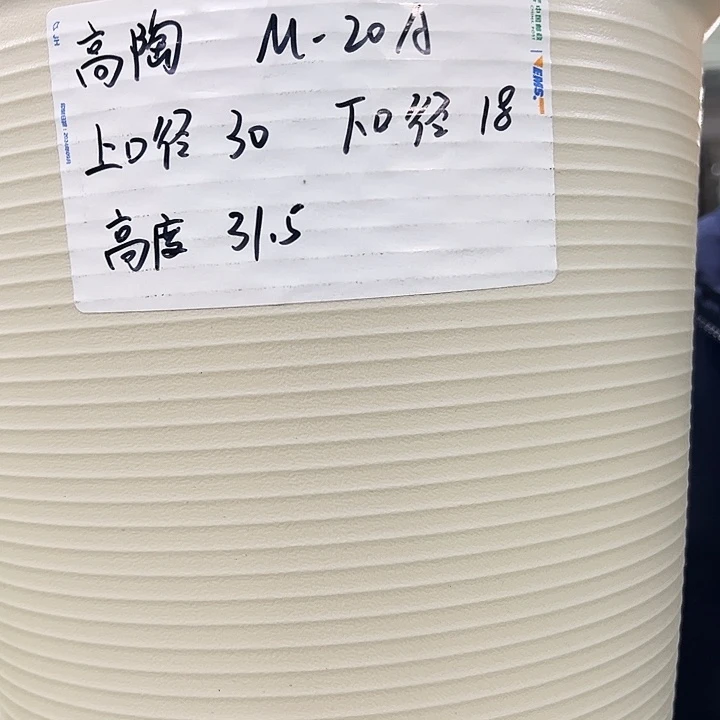 高陶 M-20A
上口径 30 下口径 18
高度 31.5
中国邮政
EMS